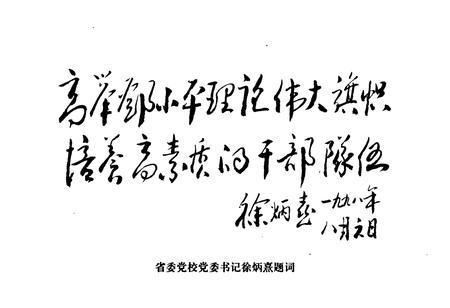 高举邓小平理论伟大旗帜
培养高素质的干部队伍
徐炳熹 一九九八年
八月六日
省委党校党委书记徐炳熹题词